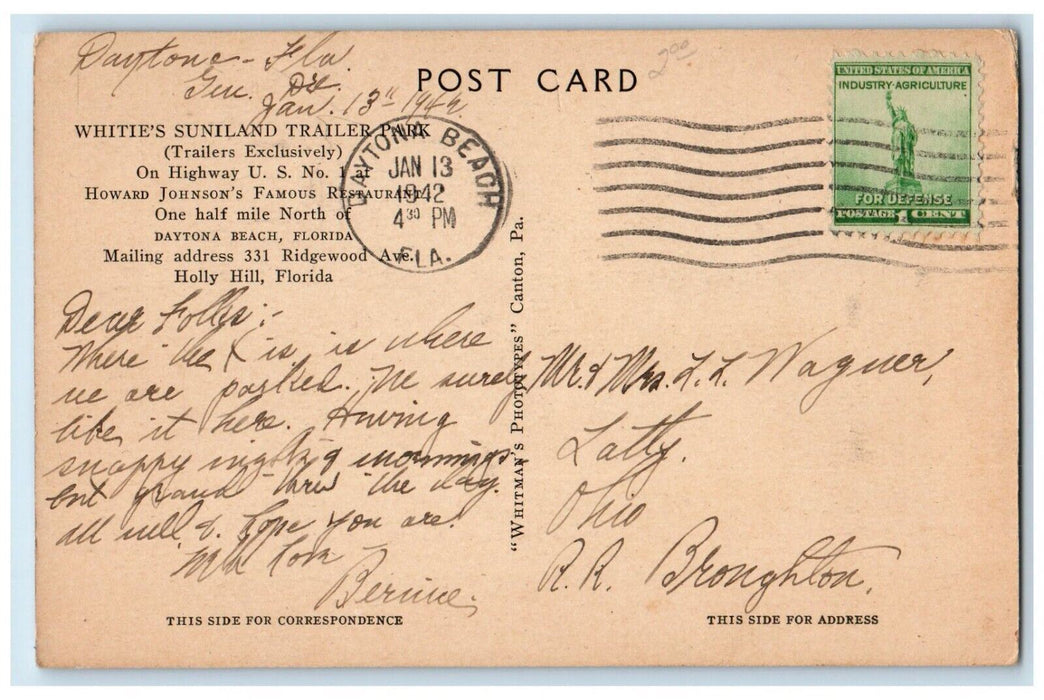 Daytona - Fla.
Gen. De.
Jan. 13" 1942
POST CARD
2.00
WHITIE'S SUNILAND TRAILER PARK
(Trailers Exclusively)
On Highway U. S. No. 1 at
HOWARD JOHNSON'S FAMOUS RESTAURANT
One half mile North of
DAYTONA BEACH, FLORIDA
Mailing address 331 Ridgewood Ave.
Holly Hill, Florida
DAYTONA BEACH
JAN 13
1942
4 30 PM
FLA.
UNITED STATES OF AMERICA
INDUSTRY·AGRICULTURE
FOR DEFENSE
POSTAGE 1 CENT
Dear Folks:-
Where the X is, is where
we are parked. We surely
like it here. Having
snappy nights & mornings
but grand thru the day.
All well & hope you are.
Much Love
Bernice.
"WHITMAN'S PHOTOTYPES" Canton, Pa.
Mr. & Mrs. L. L. Wagner,
Latty.
Ohio
R.R. Broughton.
THIS SIDE FOR CORRESPONDENCE
THIS SIDE FOR ADDRESS